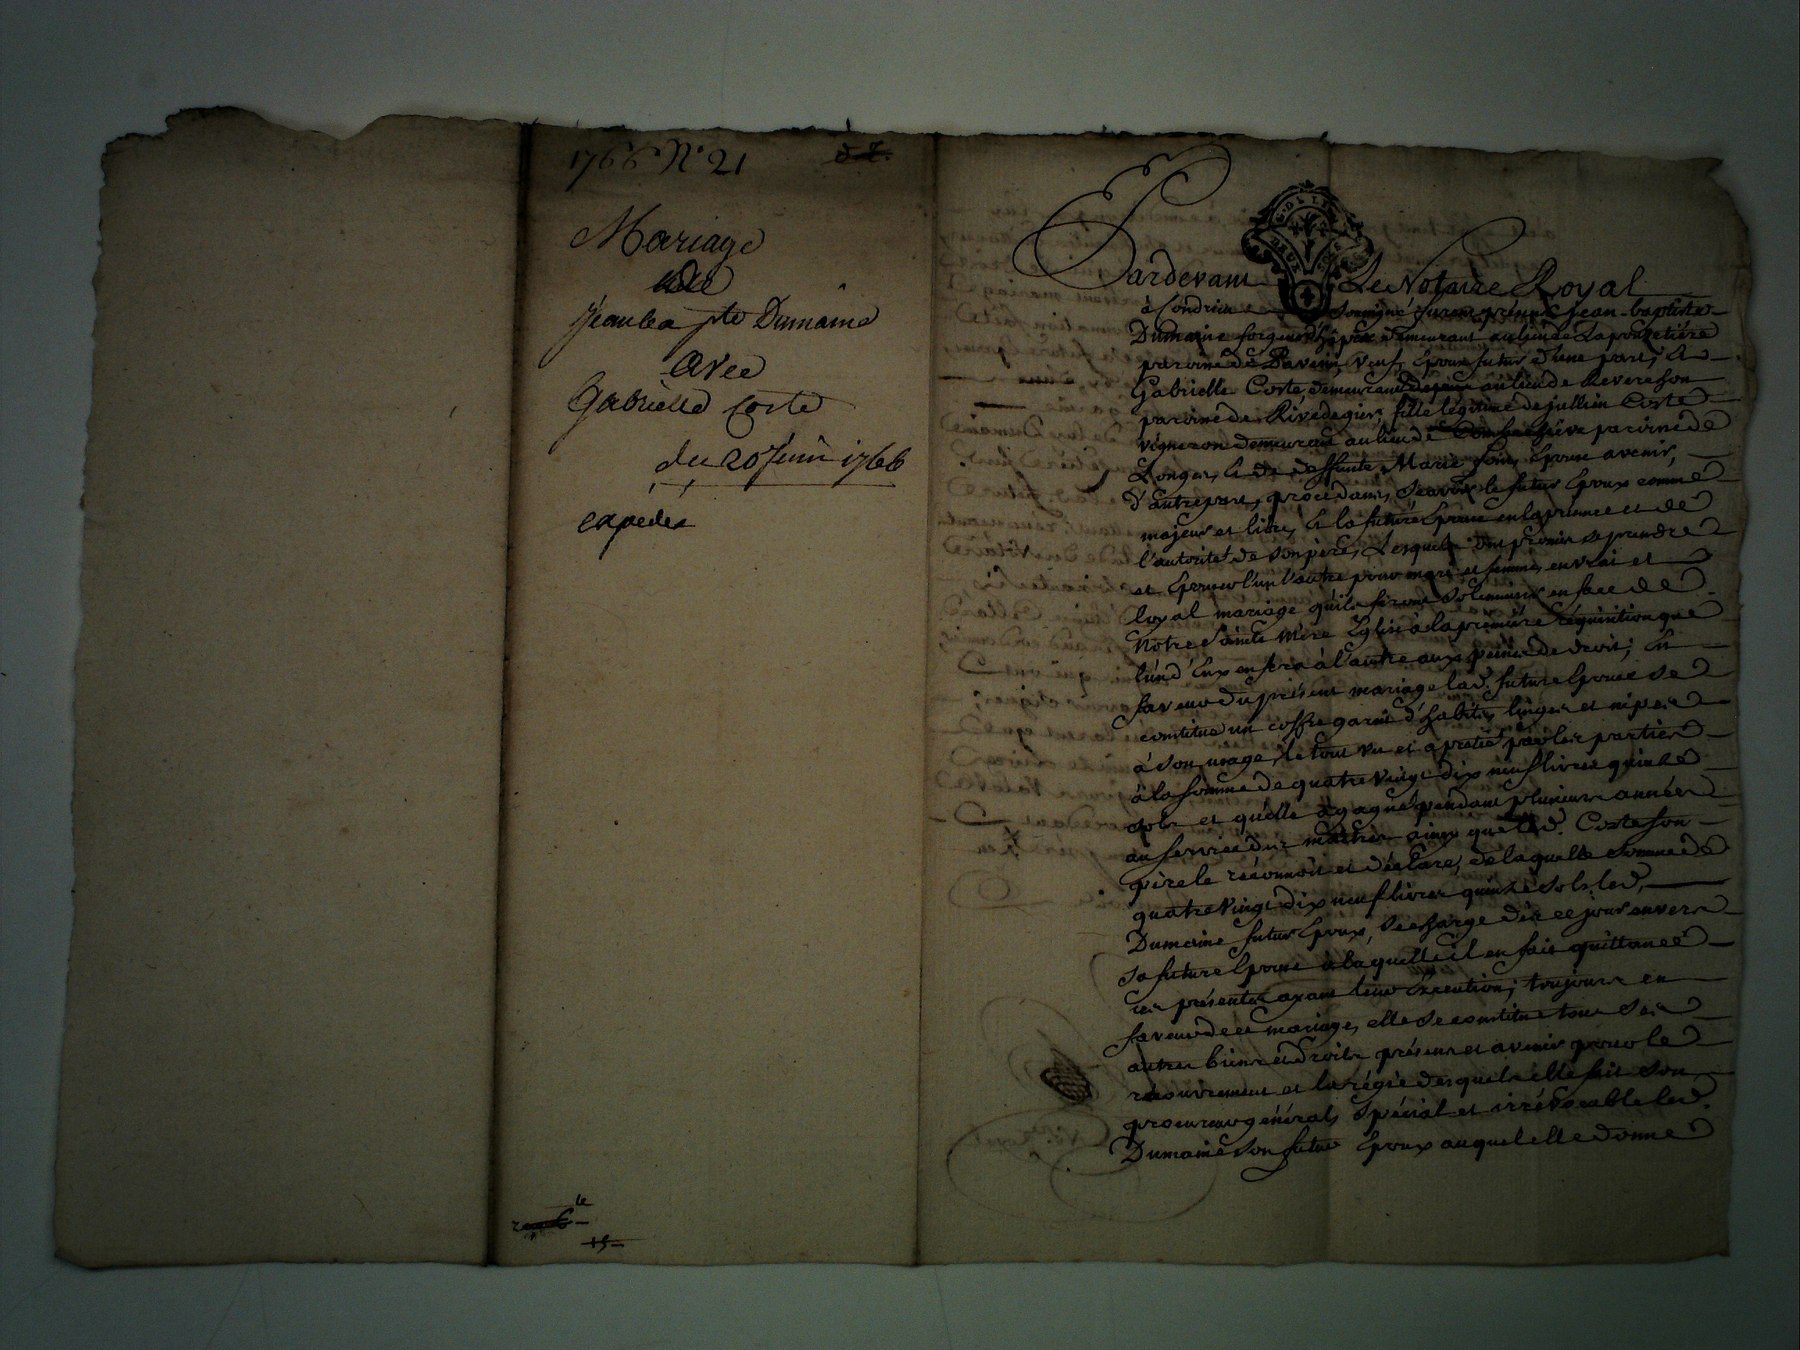 1766 N° 21
Mariage
de
Jean bapte Dumaine
avec
Gabrielle Coste
du 20 Juin 1766
expédié
15
Pardevant Le Notaire Royal
à Condrieu soussigné furent présents Jean-baptiste
Dumaine forgeur demeurant au lieu de
paroisse de Pavezin, veuf, Epoux futur d'une part, Et
Gabrielle Coste, demeurant au lieu de Revereson
paroisse de Rivedegier, fille légitime de jullien Coste
vigneron demeurant au lieu de paroisse de
Longes, Et de deffunte Marie Epouse avenir,
d'autre part, procédants, Scavoir le futur Epoux comme
majeur et libre, Et la future Epouse en la presence et de
l'autorité de son père, Lesquels ont promis se prendre
et Epouser l'un l'autre pour mari et femme en vrai et
loyal mariage qu'ils feront solemniser en face de
Notre Sainte Mère Eglise à la première réquisition que
l'un d'Eux en fera à l'autre aux peines de droit; En
faveur du présent mariage lad. future Epouse se
constitue un coffre garni d'habits, linges et nipes
à son usage, le tout vu et apretié par les parties
à la somme de quatre vingt dix neuf livres quinze
sols et qu'elle a gagné pendant plusieurs années
au service des maitres ainsy que led. Coste son
père le reconnoit et déclare, de laquelle somme de
quatre vingt dix neuf livres quinze sols led.
Dumaine futur Epoux, se charge dès ce jour envers
sa future Epouse à laquelle il en fait quittance
les présentes ayant leur Exécution; toujours en
faveur de ce mariage, elle se constitue tous ses
autres biens et droits présents et avenir pour le
recouvrement et la régie desquels elle fait son
procureur général, spécial et irrévocable led.
Dumaine son futur Epoux auquel elle donne